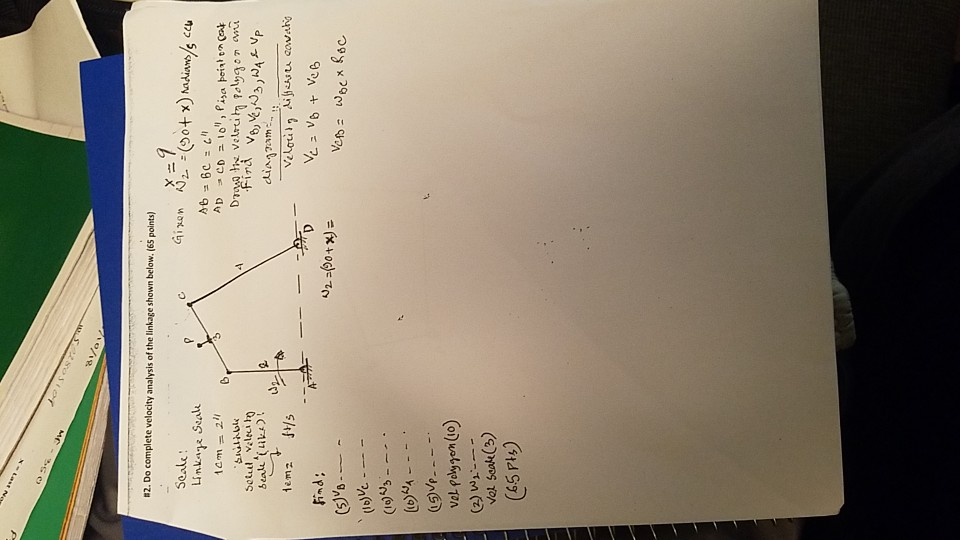 #2. Do complete velocity analysis of the linkage shown below. (65 points)
Scale:
Linkage Scale
1cm = 2"
suitable
Select velocity
Scale (like)!
1cm = ft/s
Find:
(5) VB ----
(10) VC ----
(10) W3 ----
(10) W4 ----
(15) VP ----
Vel polygon (10)
(2) W2 ----
Vel scale (3)
(65 pts)
P
C
B
3
4
2
W2
A
D
W2 = (90+x) =
Given
x = 9
W2 = (90+x) radians/s CCW
AB = BC = 6"
AD = CD = 10", P is a point on
Draw the velocity polygon and
Find VB, VC, W3, W4 & VP
diagram
Velocity difference equation
VC = VB + VCB
VCB = WBC × RBC